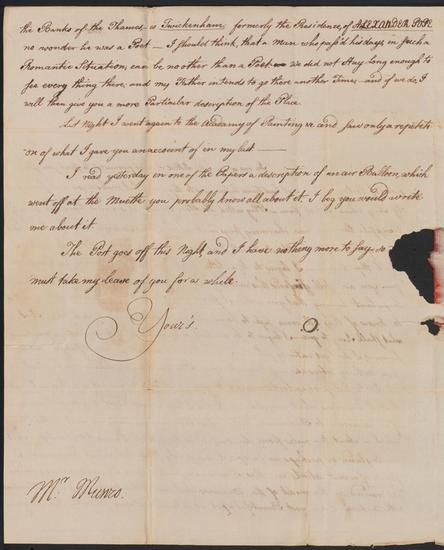 the Banks of the Thames is Twickenham formerly the Residence of ALEXANDER POPE
no wonder he was a Poet — I should think, that a Man who pass'd his days in such a
Romantic Situation, can be no other than a Poet — We did not stay long enough to
see every thing there, and my Father intends to go there another Time — and if we do, I
will then give you a more Particular description of the Place.
Last Night I went again to the Academy of Painting &c. and saw only a repetiti
on of what I gave you an account of in my last —
I read yesterday in one of the Papers a description of an air Balloon, which
went off at the Muette you probably know all about it, I beg you would write
me about it.
The Post goes off this Night, and I have nothing more to say, so
must take my leave of you for a while.
Your's.
Mr. Munro.